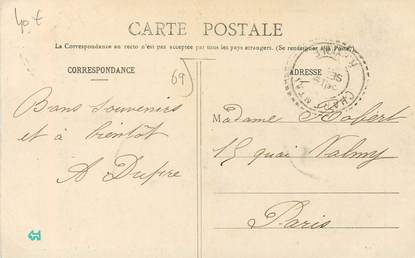 40 €
CARTE POSTALE
La Correspondance au recto n'est pas acceptée par tous les pays étrangers. (Se renseigner à la Poste).
CORRESPONDANCE
69
ADRESSE
RHÔNE
Bons souvenirs
et à bientôt
A Dupre
Madame Robert
15 quai Valmy
Paris